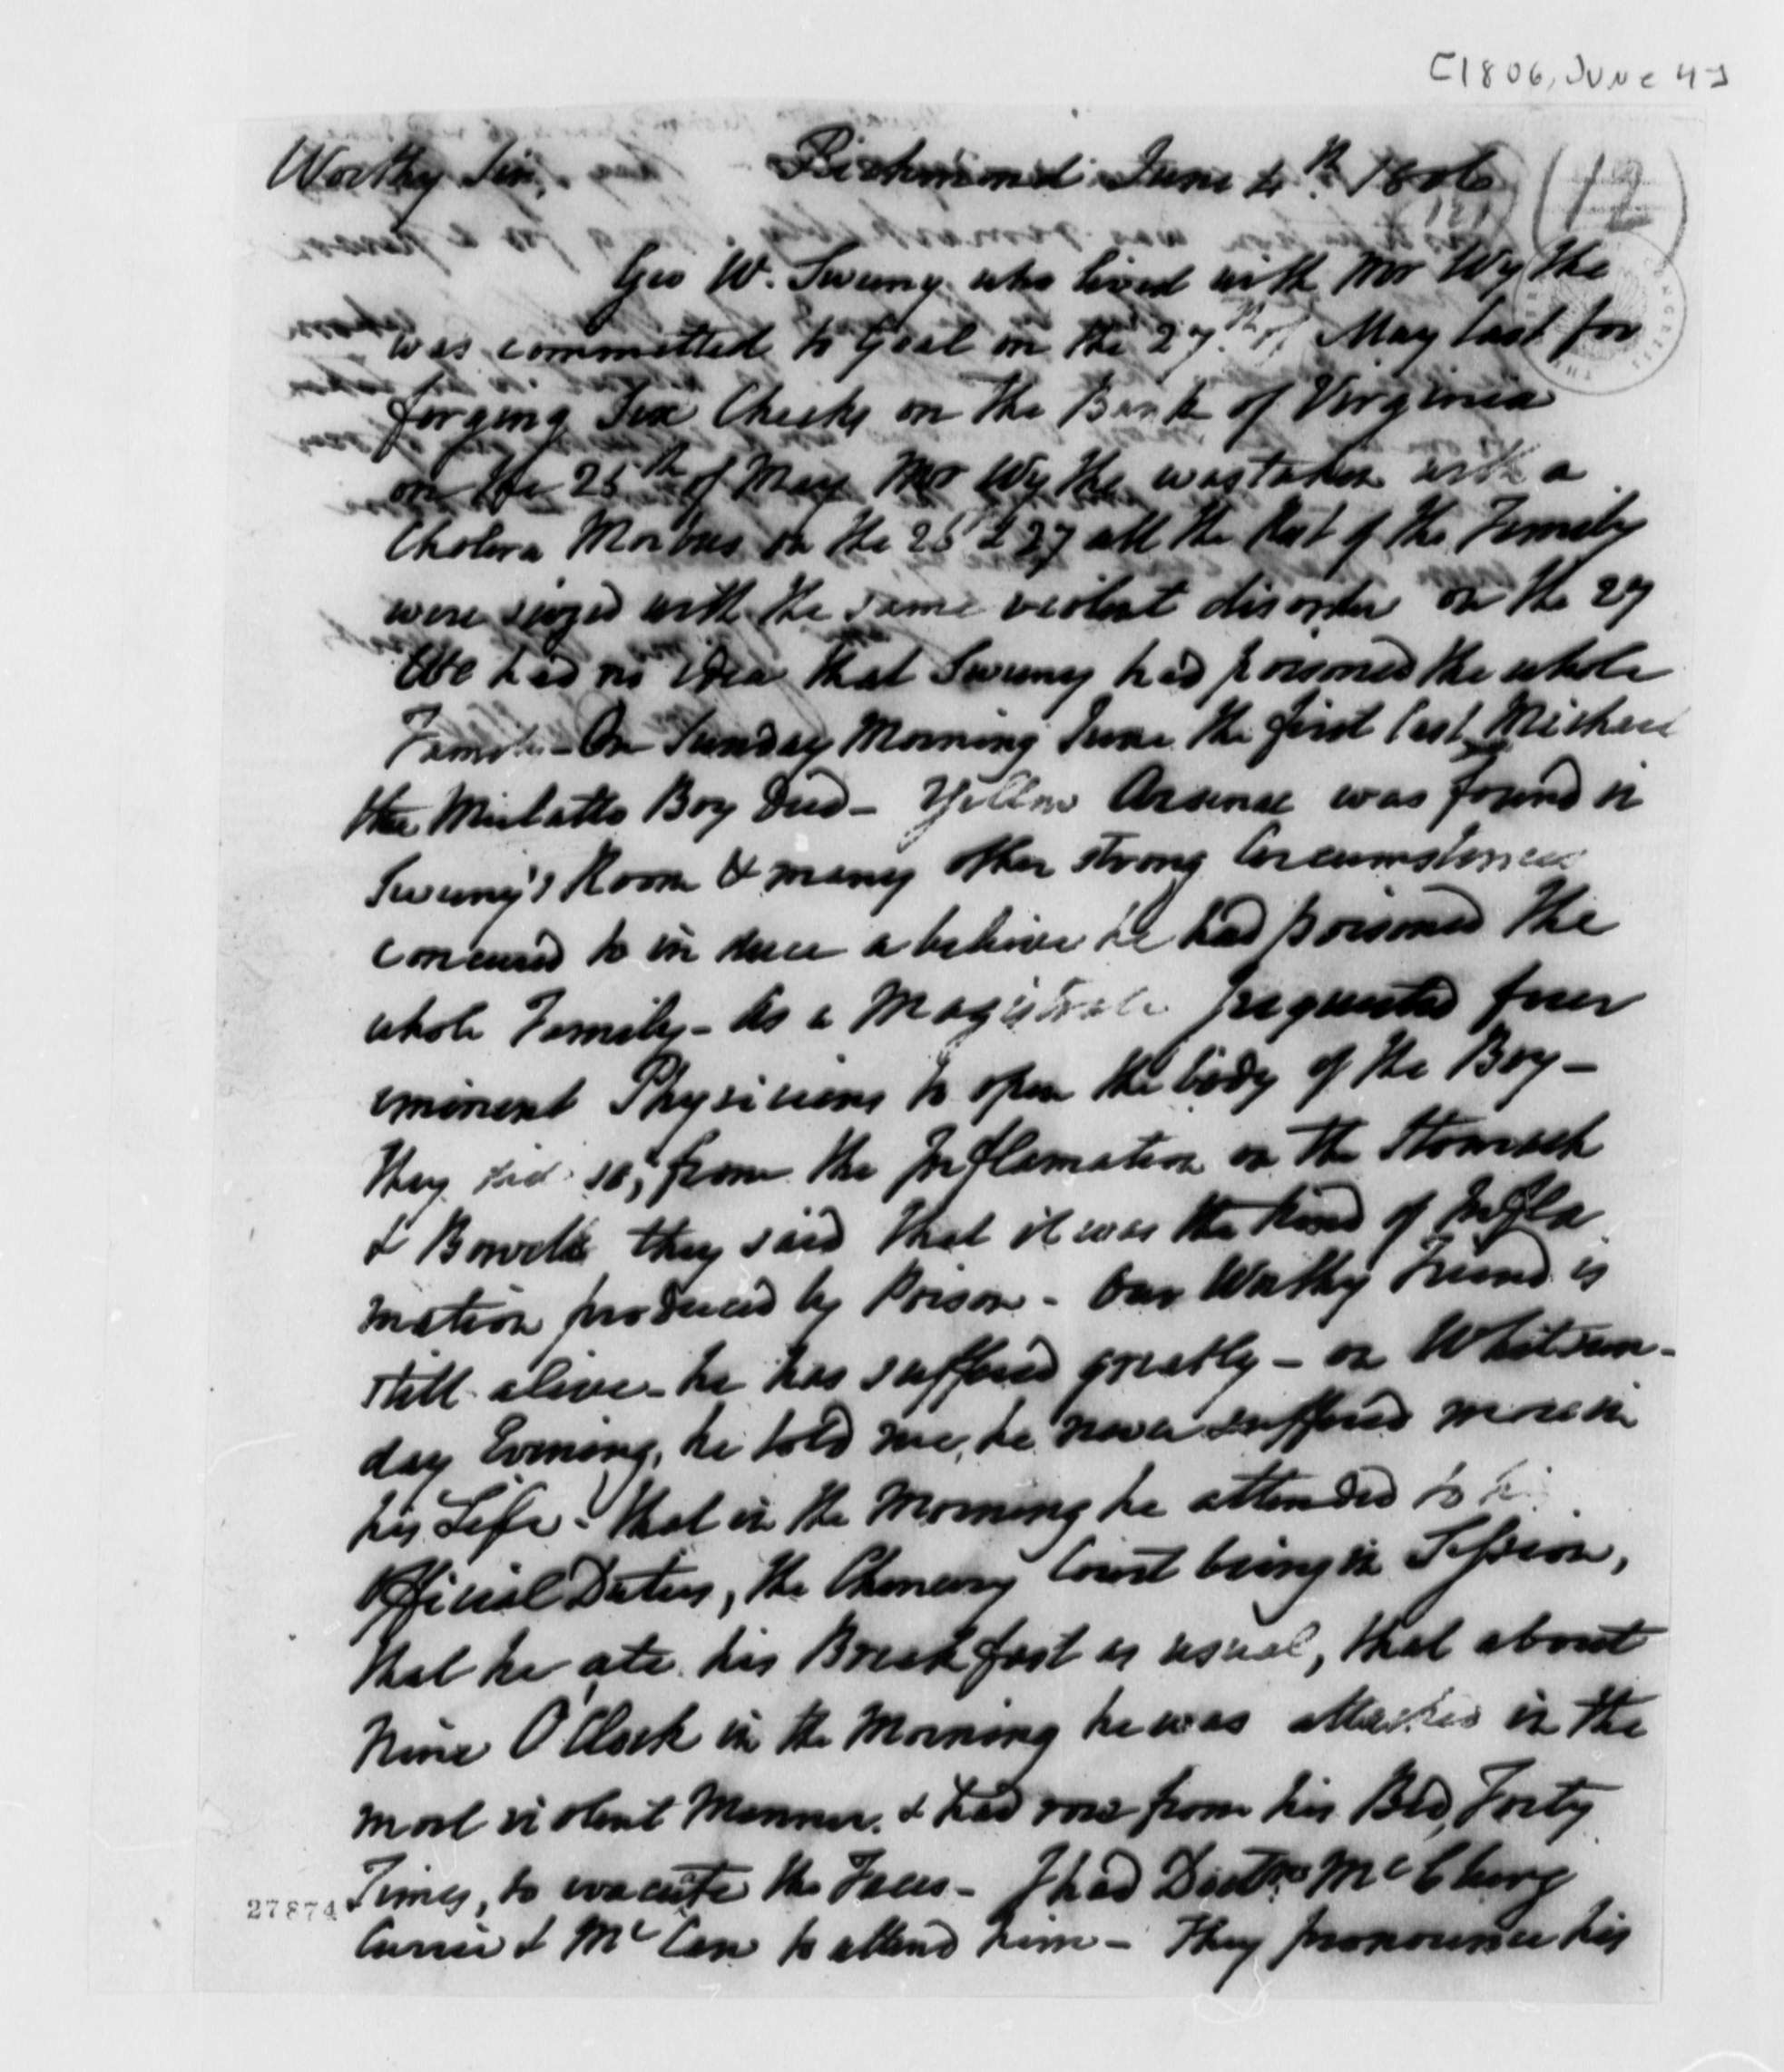 [1806, June 4]
Worthy Sir, Richmond June 4th 1806
(12)
Geo W. Sweeny who lived with Mr Wythe
was committed to Goal on the 27th of May last for
forging Six Checks on the Bank of Virginia
on the 25th of May Mr Wythe was taken with a
Cholera Morbus on the 26 & 27 all the Rest of the Family
were siezed with the same violent disorder on the 27
We had no idea that Sweeny had poisoned the whole
Family - On Sunday Morning June the first last Michael
the Mulatto Boy died - Yellow Arsenic was found in
Sweeny's Room & many other strong Circumstances
concured to in duce a believe he had poisoned the
whole Family - As a Magistrate I requested four
eminent Physicians to open the body of the Boy -
They did so; from the Inflamation on the Stomach
& Bowels they said that it was the kind of Infla
mation produced by Poison - Our Worthy Friend is
still alive - he has suffered greatly - on Whitsun-
day Evening, he told me, he never suffered more in
his Life - that in the Morning he attended to
Official Duties, the Chancery Court being in Session,
that he ate his Breakfast as usual, that about
Nine O'Clock in the Morning he was attacked in the
most violent Manner. & had rose from his Bed, Forty
Times, to evacute the Faces - I had Doctrs McClurg
Currie & McCaw to attend him - They pronounce his
27874